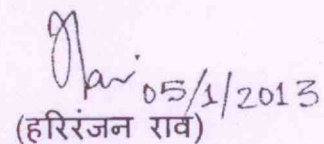 05/1/2013
(हरिरंजन राव)